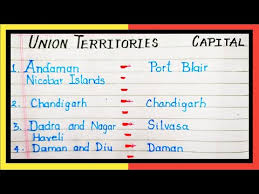 UNION TERRITORIES CAPITAL
1. Andaman - Port Blair
Nicobar Islands
2. Chandigarh - Chandigarh
3. Dadra and Nagar - Silvasa
Haveli
4. Daman and Diu - Daman